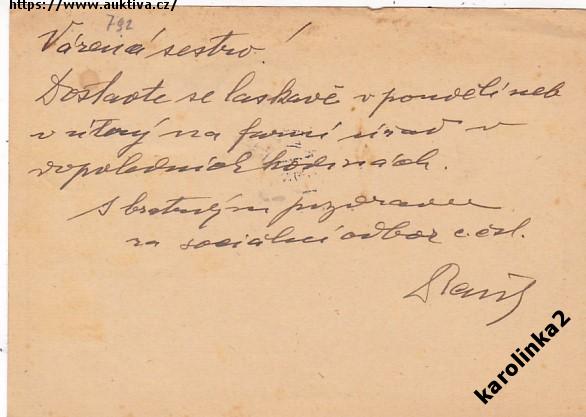 https://www.auktiva.cz/
792
Vážená sestro!
Dostavte se laskavě v pondělí neb
v úterý na farní úřad v
dopoledních hodinách.
S bratrským pozdravem
za sociální odbor c. čsl.
karolinka2